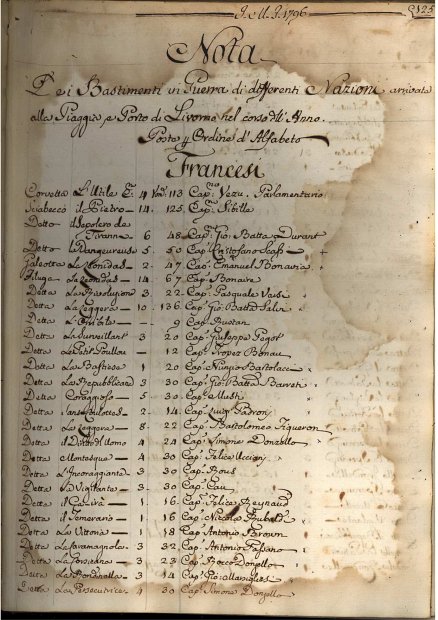 J. M. J. 1796
125
Nota
Dei Bastimenti di Guerra di differenti Nazioni arrivate
alla Piaggia e Porto di Livorno nel corso dell' Anno.
Posto p Ordine d'Alfabeto
Francesi
Corvetta L'Utile C. 4 113 Cap.no Vezu. Parlamentario
Sciabecco il Pietro 14. 125. Cap. Sibille
Detto il Sepolcro de
Tiranni 6 48 Cap. Gio: Batta Durant
Detto La Dangereuse 5. 50 Cap. Cristofano
Galeotta La Leonidas 2. 47 Cap. Emanuel Bonavia
Filuga La Leonidas 14. 67 Cap. Bonaire
Detta La Rivoluzione 3 22 Cap. Pasquale
Detta La Leggera 10. 136. Cap. Gio: Batta
Detta 9 Cap. Buotan
Detta La Surveillant 3 20 Cap. Giuseppe Pagot
Detta Le Petit Poullon 12 Cap. Tropez Bonau
Detta La Bastiese 1 20 Cap. Nunzio Bartolacci
Detta La Repubblicana 3 30 Cap. Gio: Batta
Detta Coraggioso 5 30 Cap.
Detta Sansculottes 2. 14. Cap. Luigi Padrony
Detta La Leggera 8 22 Cap. Bartolomeo Figueron
Detta il Dritto dell'Uomo 4 24 Cap. Simone Donzello
Detta Montesque 4 30 Cap. Felice
Detta L'Incoraggiante 3 30 Cap. Bous
Detta La Vigilante 3 30 Cap. Cau
Detta il 1 16 Cap. Felice Reynaud
Detta il Temerario 1 16 Cap. Niccola
Detta La Vittoria 1 18 Cap. Antonio Brown
Detta La Caramagnola 3 32 Cap. Antonio Passano
Detta La 3 23 Cap. Rocco Donzello
Detta La Rondinella 3 14 Cap.
Detta La Persecutrice 4 30 Cap. Simone Donzello